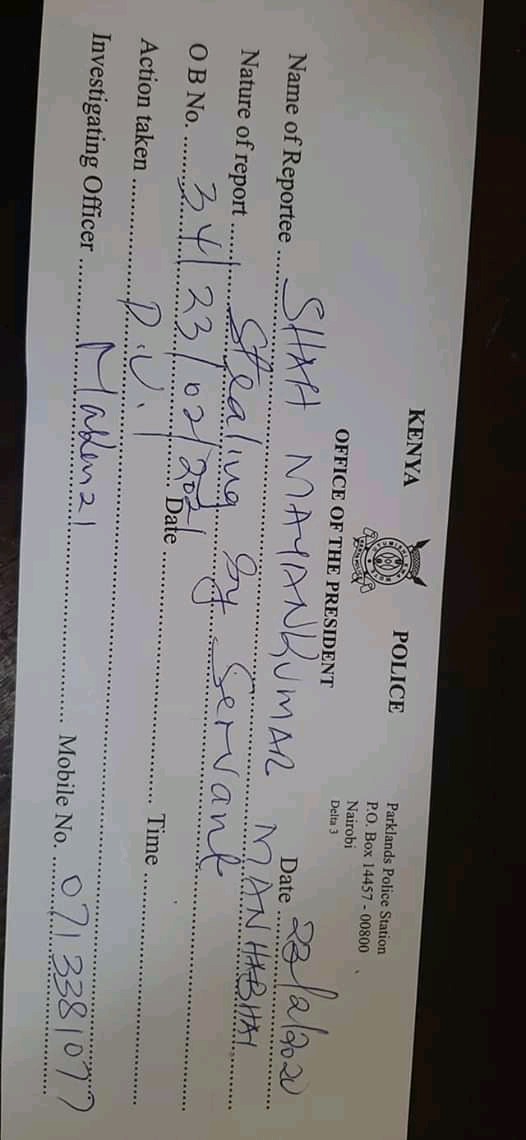 KENYA POLICE
OFFICE OF THE PRESIDENT
Parklands Police Station
P.O. Box 14457 - 00800
Nairobi
Delta 3
Date 23/2/202
Name of Reportee SHAH MAYANKUMAR MANHABHAI
Nature of report Stealing by Servant
O B No. 34/23/02/2021 Date
Time
Action taken P.U.I
Investigating Officer Mobile No. 0713381077